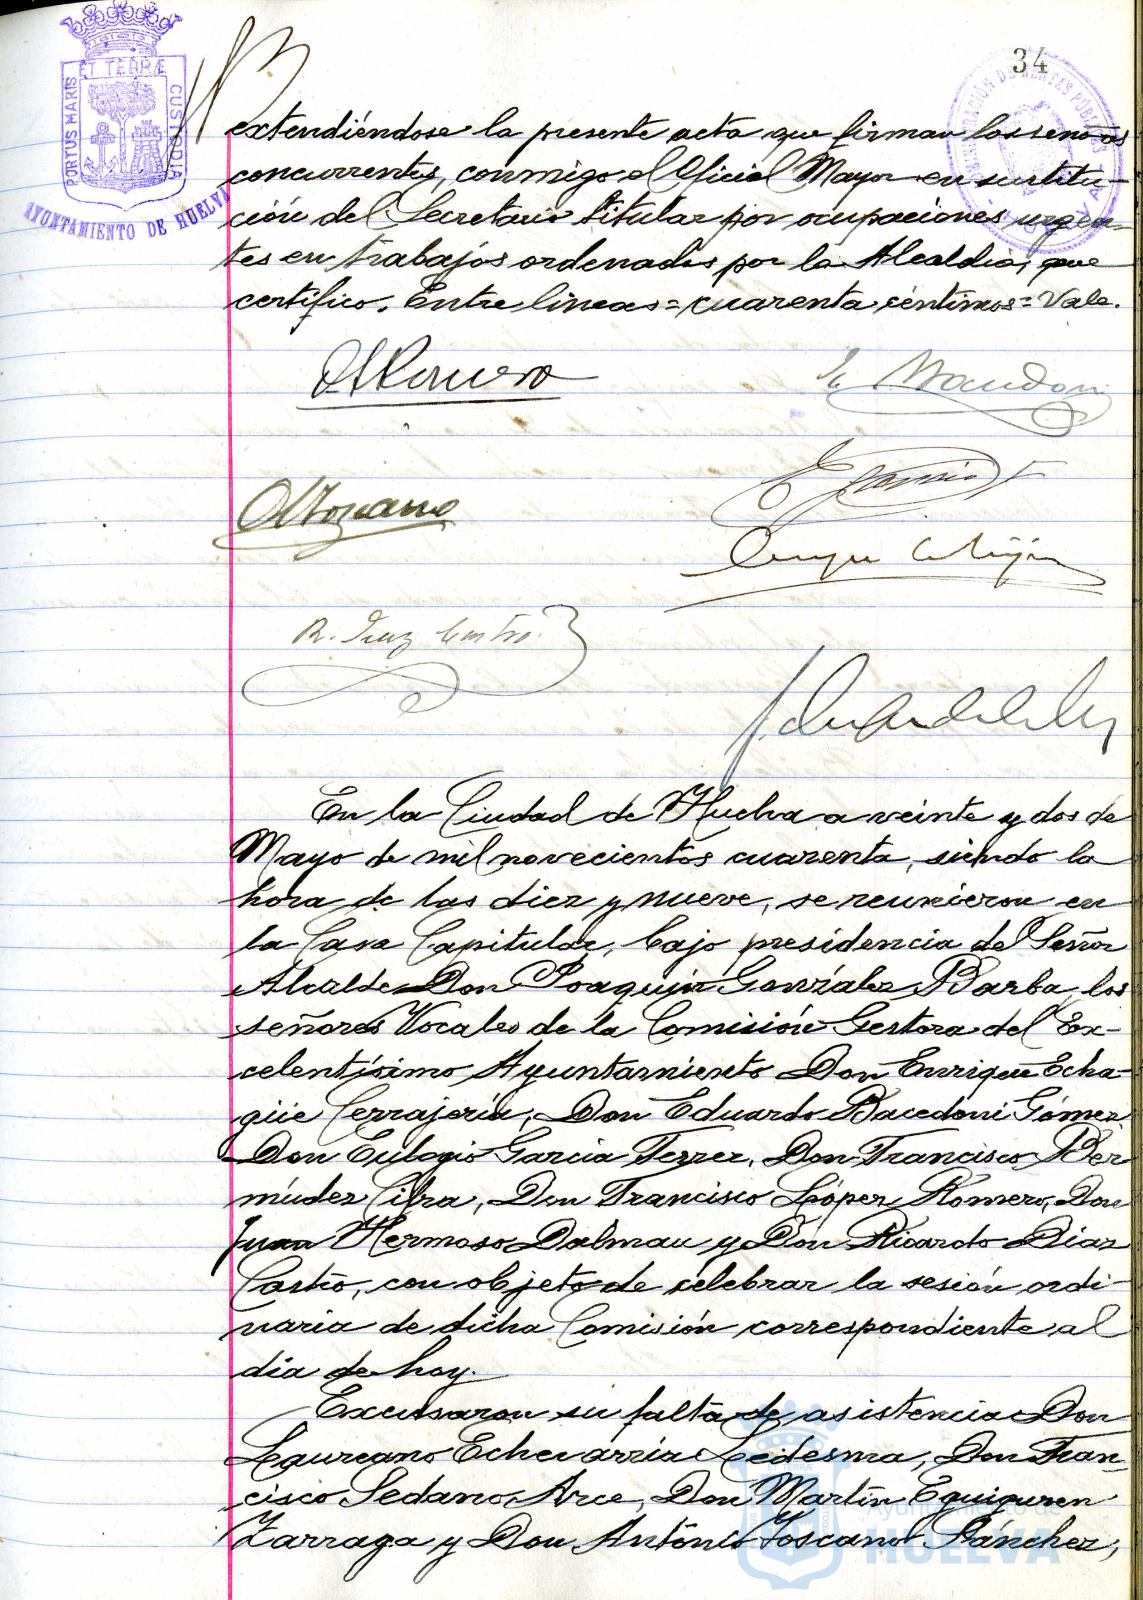 34
PORTUS MARIS ET TERRÆ CUSTODIA
AYUNTAMIENTO DE HUELVA
extendiéndose la presente acta que firman los señores
concurrentes, conmigo el Oficial Mayor en sustitu-
ción del Secretario titular por ocupaciones urgen-
tes en trabajos ordenados por la Alcaldía, que
certifico. Entre líneas=cuarenta céntimos=Vale.
R. Diaz Castro.
En la Ciudad de Huelva a veinte y dos de
Mayo de mil novecientos cuarenta, siendo la
hora de las diez y nueve, se reunieron en
la Casa Capitular, bajo presidencia del Señor
Alcalde Don Joaquín González Barba, los
señores Vocales de la Comisión Gestora del Ex-
celentísimo Ayuntamiento Don Enrique Echa-
güe Cerrajería, Don Eduardo Bacedoni Gómez,
Don Eulogio García Ferrer, Don Francisco Ber
múdez Cibra, Don Francisco López Romero, Don
Juan Hermoso Dalmau y Don Ricardo Diaz
Castro, con objeto de celebrar la sesión ordi-
naria de dicha Comisión correspondiente al
día de hoy.
Excusaron su falta de asistencia Don
Laureano Echevarría Ledesma, Don Fran-
cisco Sedano Arce, Don Martín Eguiguren
Zarraga y Don Antonio Toscano Sánchez,
Ayuntamiento de
HUELVA